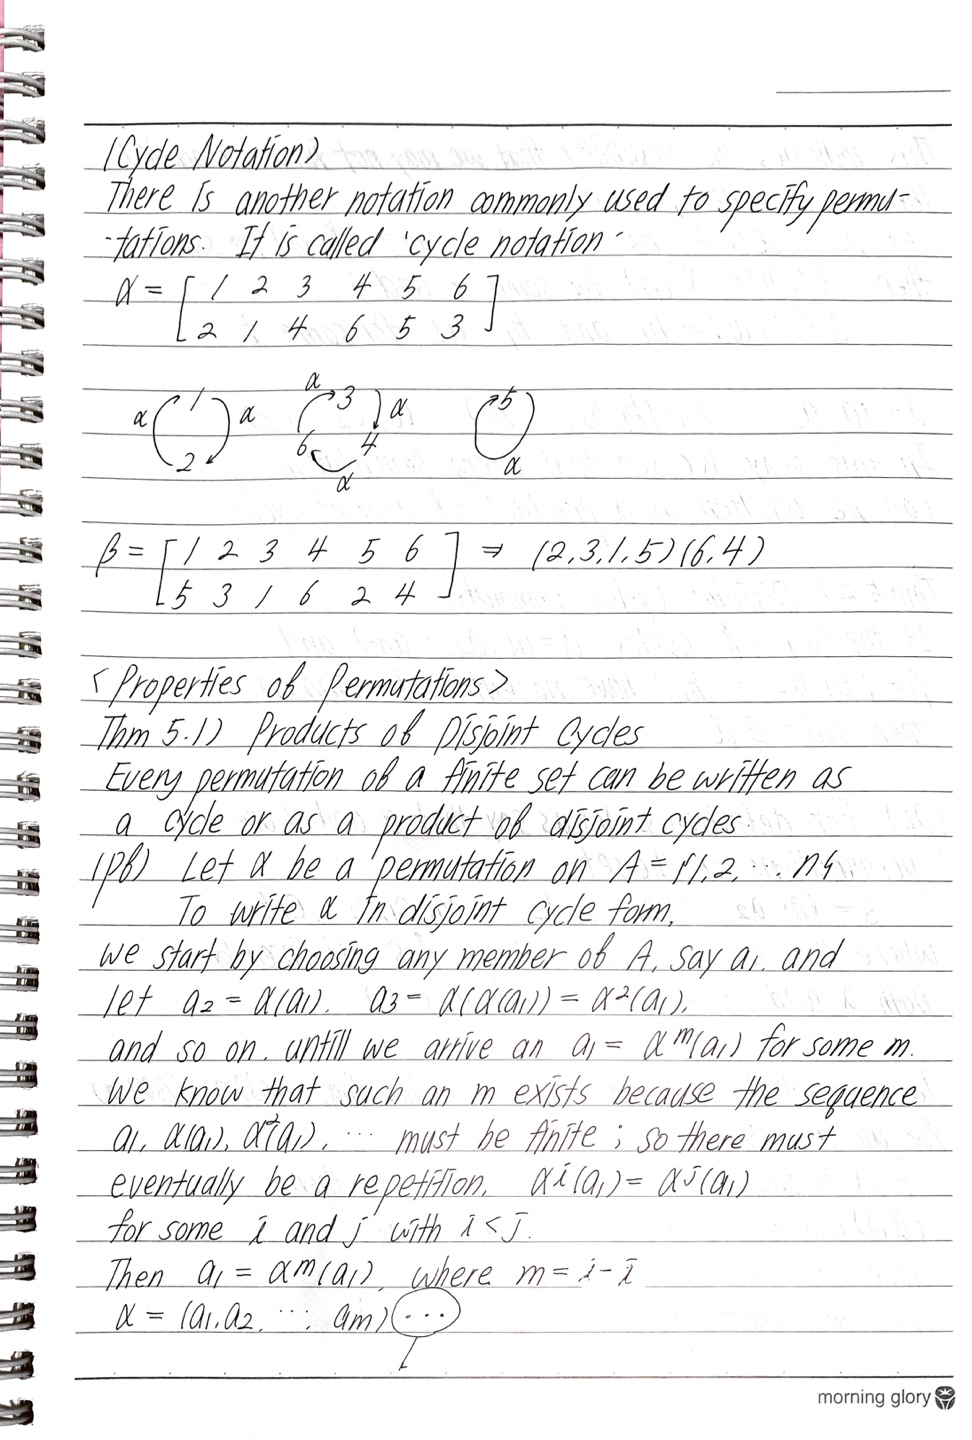 (Cycle Notation>
There is another notation commonly used to specify permu-
-tations. It is called 'cycle notation'
α = [ 1 2 3 4 5 6 ]
[ 2 1 4 6 5 3 ]
α 1 α 2 α 3 α 4 6 α 5 α
β = [ 1 2 3 4 5 6 ] ⇒ (2,3,1,5)(6,4)
[ 5 3 1 6 2 4 ]
<Properties of Permutations>
Thm 5.1) Products of Disjoint Cycles
Every permutation of a finite set can be written as
a cycle or as a product of disjoint cycles.
(pf) Let α be a permutation on A = {1, 2, ..., n}
To write α in disjoint cycle form,
we start by choosing any member of A, say a1, and
let a2 = α(a1), a3 = α(α(a1)) = α²(a1),
and so on, untill we arrive an a1 = α^m(a1) for some m.
We know that such an m exists because the sequence
a1, α(a1), α²(a1), ... must be finite ; so there must
eventually be a repetition, α^i(a1) = α^j(a1)
for some i and j with i < j.
Then a1 = α^m(a1), where m = i - i
α = (a1, a2, ..., am)(...)
morning glory